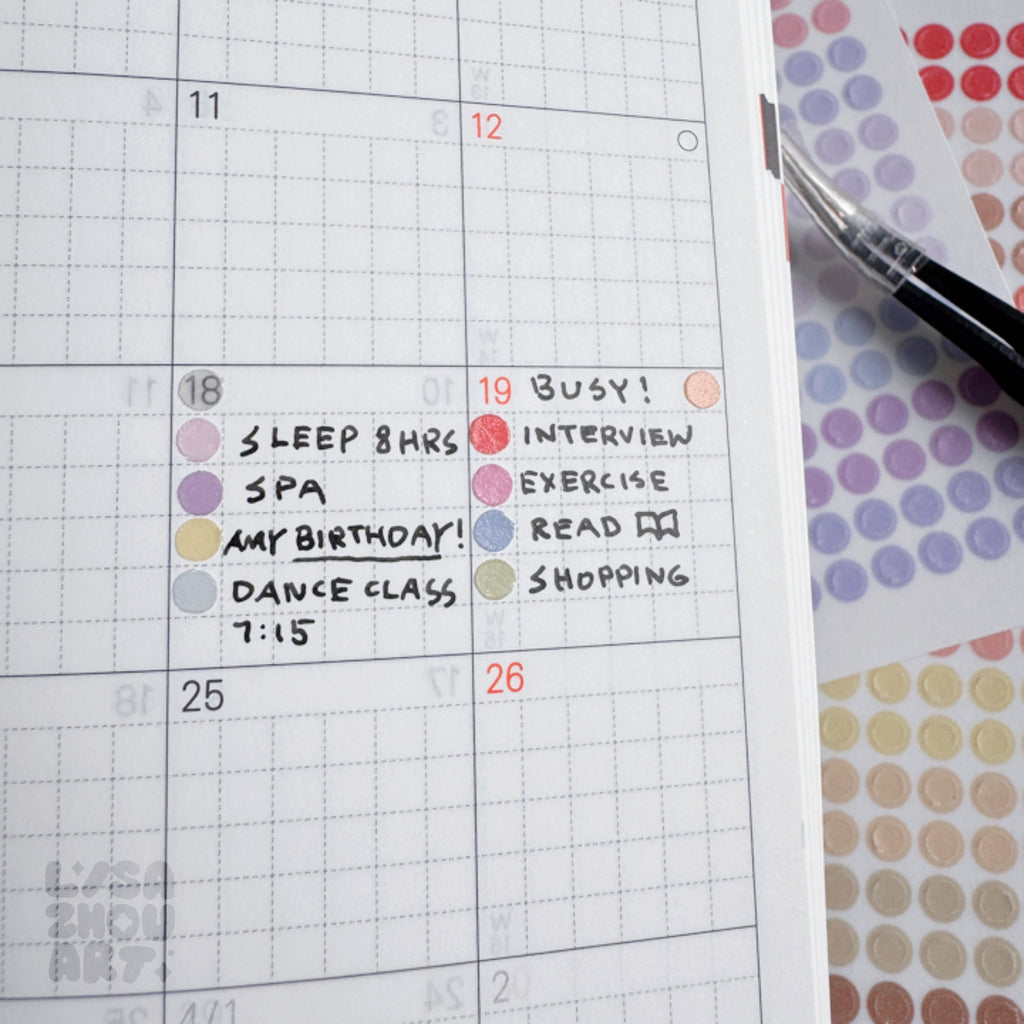 11
12
18
SLEEP 8HRS
SPA
AMY BIRTHDAY!
DANCE CLASS
7:15
19 BUSY!
INTERVIEW
EXERCISE
READ
SHOPPING
25
26
2
LISA
ZHOU
ART